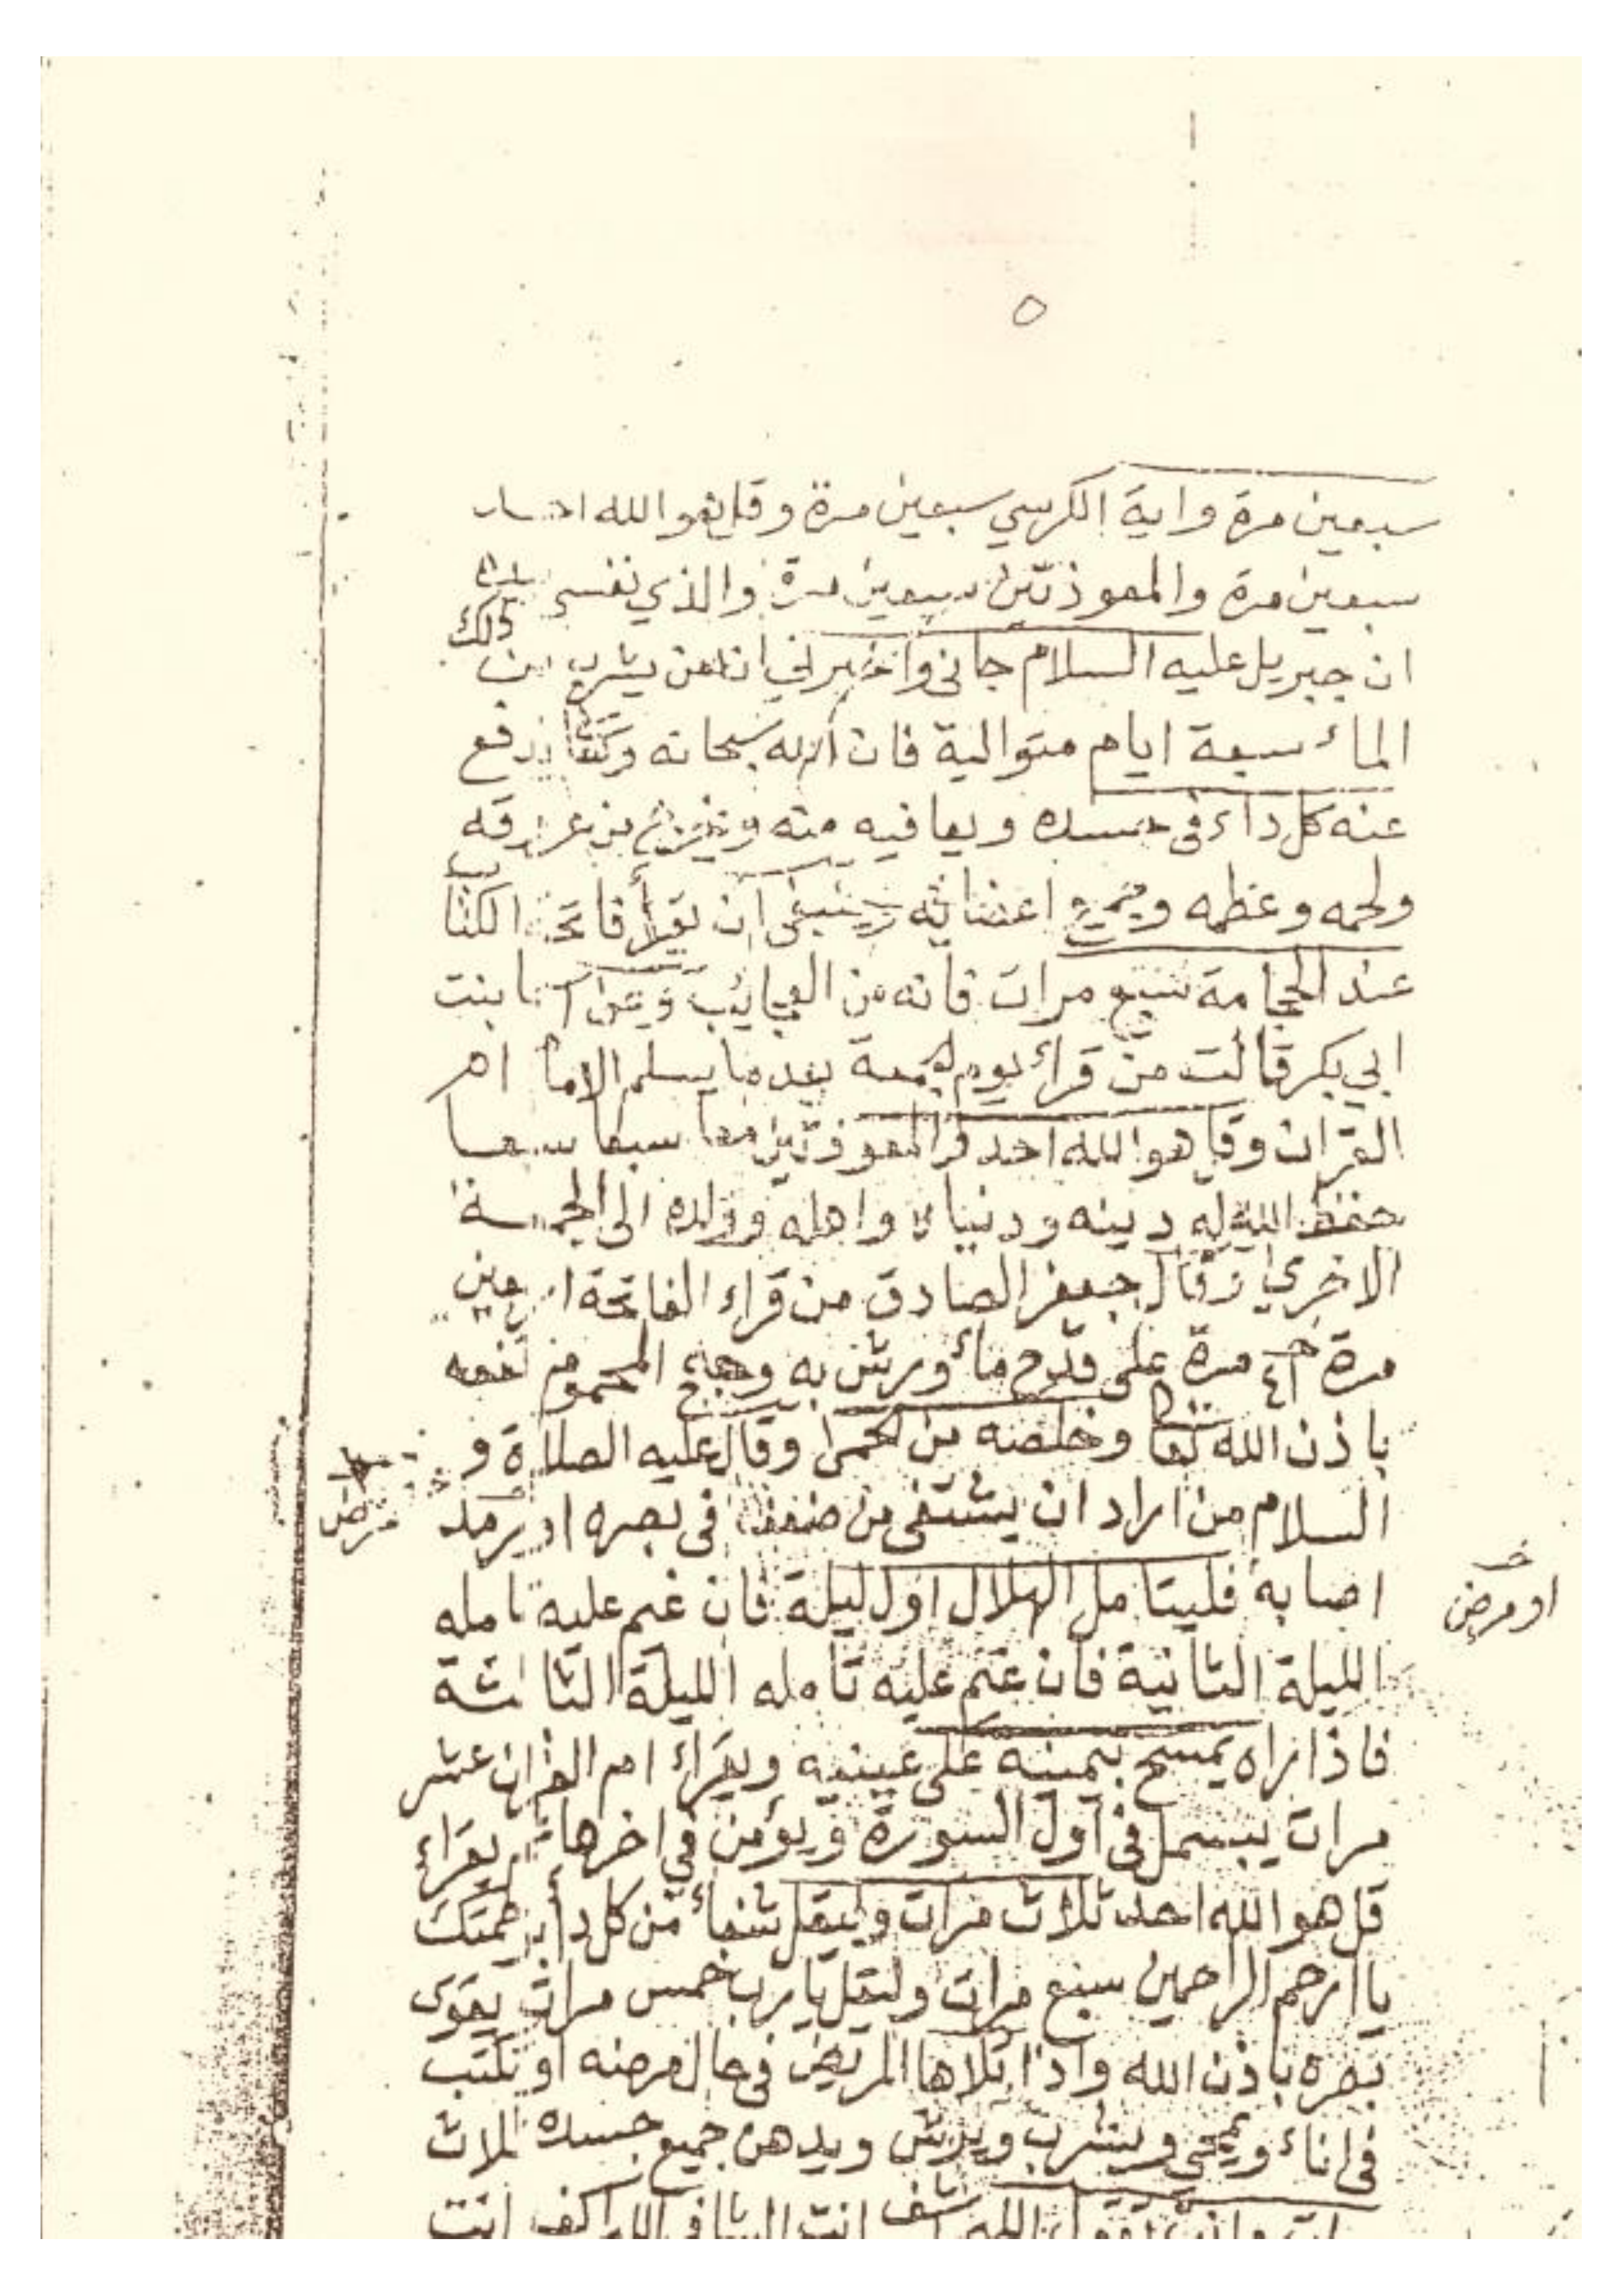 ٥
سبعين مرة واية الكرسي سبعين مرة وقل هو الله احد
سبعين مرة والمعوذتين سبعين مرة والذي نفسي بيده
ان جبريل عليه السلام جانى واخبرني ان من يشرب من ذلك
الماء سبعة ايام متوالية فان الله سبحانه وتعا يدفع
عنه كل داء فى جسده ويعافيه منه ويخرج من عروقه
ولحمه وعظمه وجميع اعضائه وينبغى ان يقرأ فاتحة الكتاب
عند الحجامة سبع مرات فانه من العجائب وعن اسما بنت
ابي بكر قالت من قراء يوم الجمعة بعد ما يسلم الاما ام
القران وقل هو الله احد والمعوذتين معا سبعا سبعا
حفظ الله له دينه ودنياه واهله وولده الى الجمعة
الاخرى وقال جعفر الصادق من قراء الفاتحة اربعين
مرة خ ٤١ مرة على قدح ماء ويرش به وجه المحموم نفعه
باذن الله تعا وخلصه من الحمى وقال عليه الصلاة و
السلام من اراد ان يشتفى من ضعف فى بصره او رمد
مرض
اصابه فليتامل الهلال اول ليلة فان غم عليه تامله
خ
او مرض
الليلة الثانية فان غم عليه تامله الليلة الثالثة
فاذا راه يمسح بيمينه على عينيه ويقراء ام القران عشر
مرات يبسمل فى اول السورة ويؤمن في اخرها ثم يقراء
قل هو الله احد ثلاث مرات وليقل شفاء من كل داء برحمتك
يا ارحم الراحمين سبع مرات وليقل يا رب خمس مرات يقوى
بصره باذن الله واذا تلاها المريض فى حال مرضه او تكتب
فى اناء ويمحى ويشرب ويرش ويدهن جميع جسده ثلاث
اللهم اشف انت الشافى اللهم اكف انت